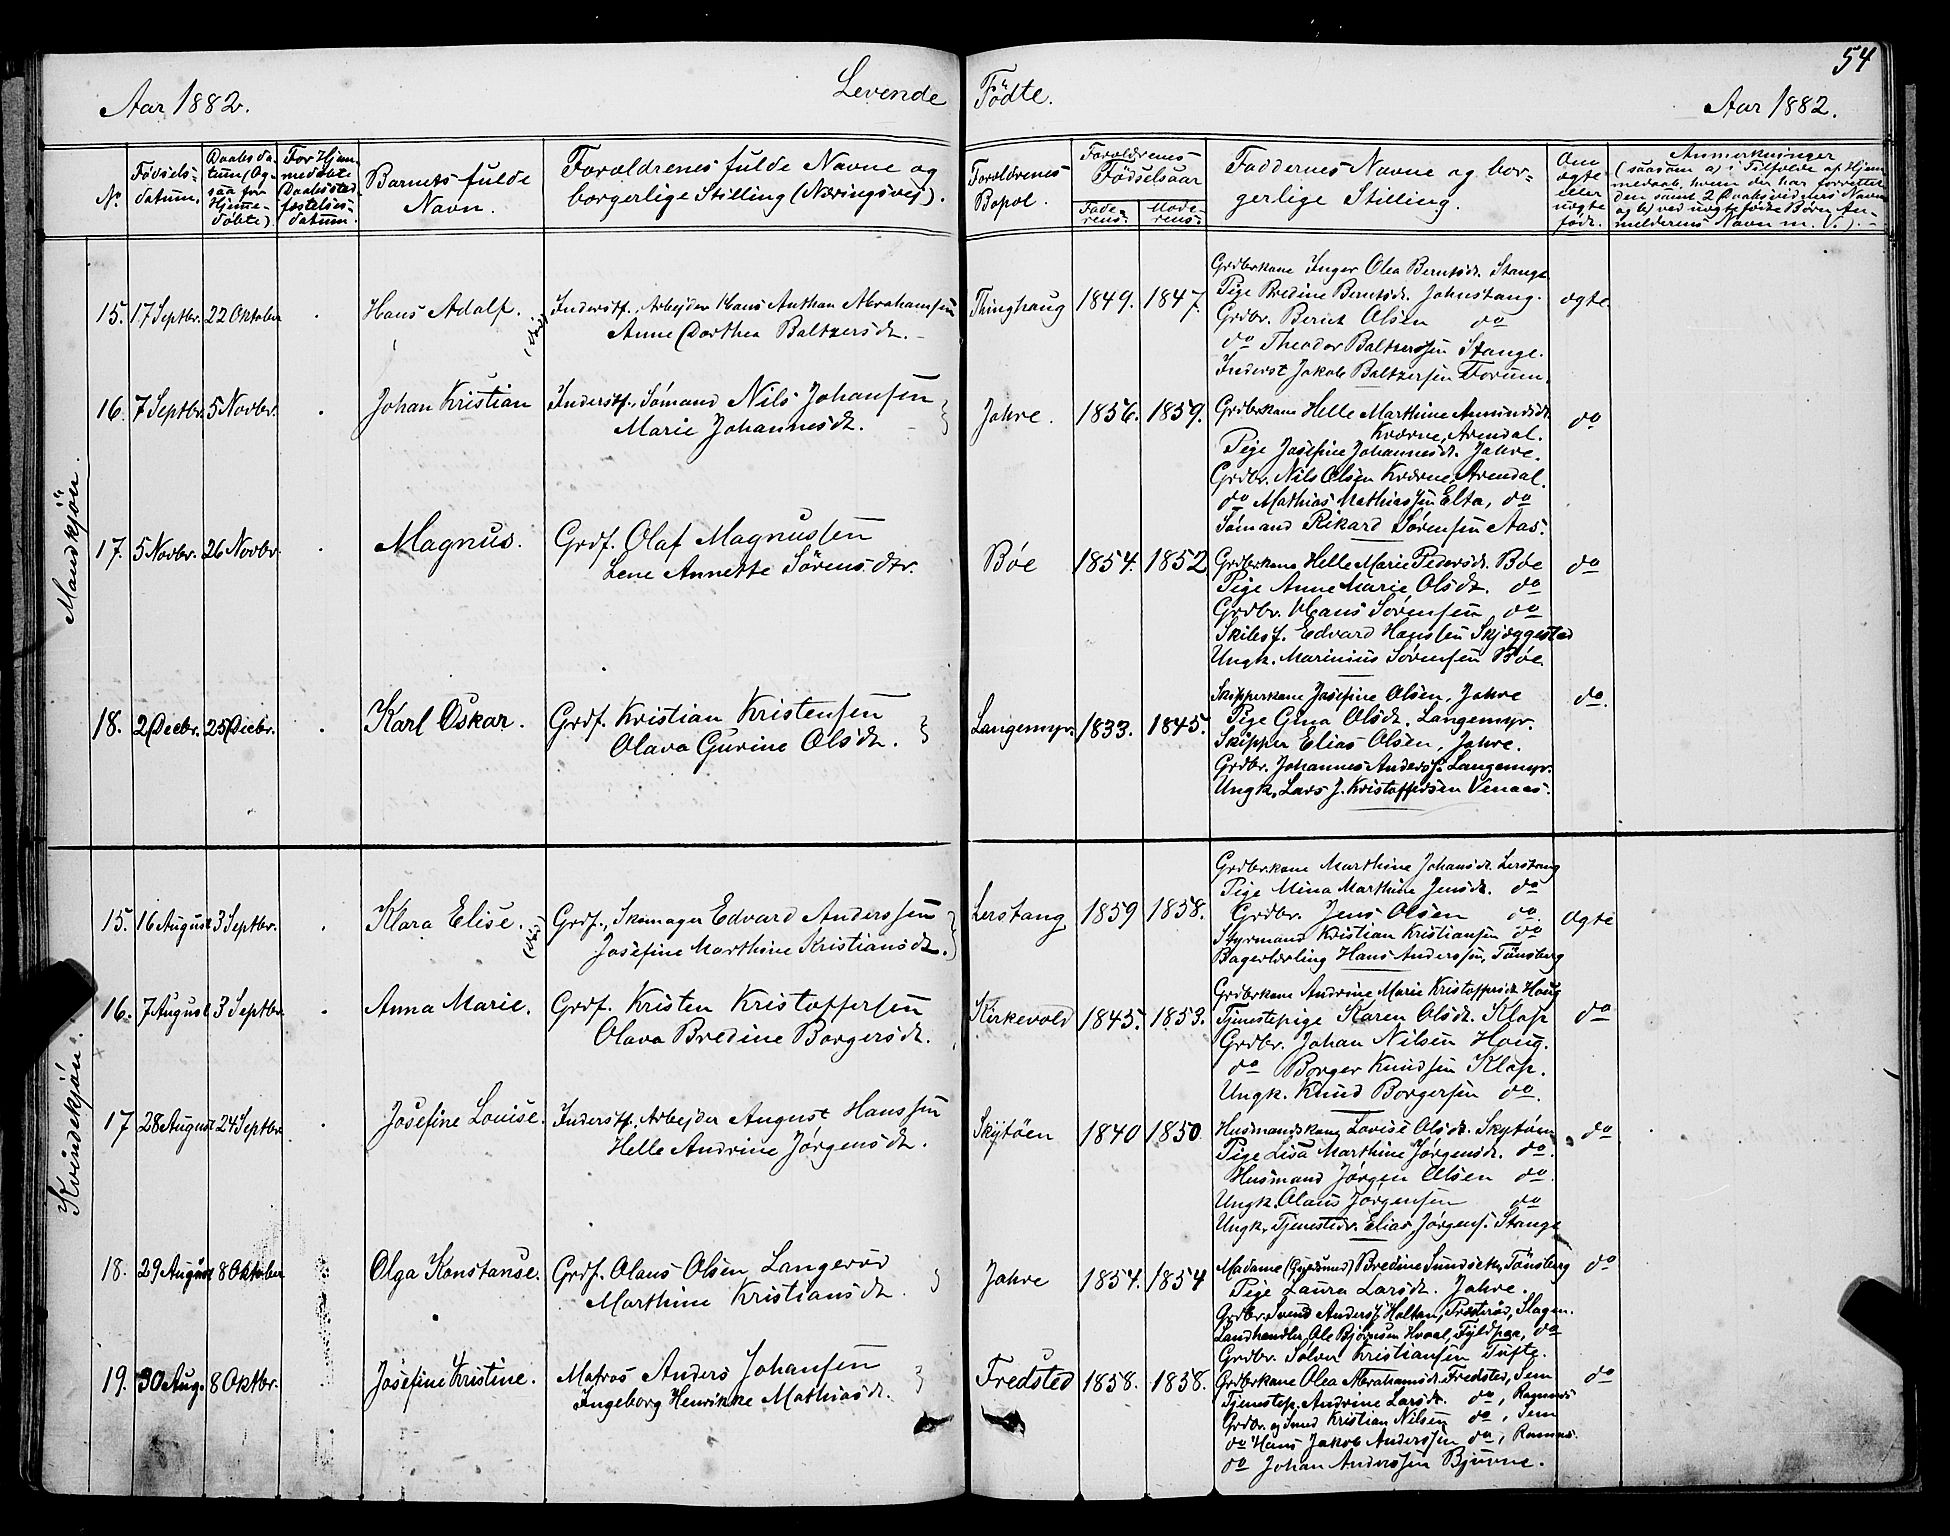 54
Aar 1882.
Levende
Fødte.
Aar 1882.
No
Fødsels-
datum.
Daabsda-
tum (Og-
saa for
Hjemme-
døbte)
For Hjem-
medøbte
Daabsstad-
fæstelses-
datum.
Barnets fulde
Navn.
Forældrenes fulde Navne og
borgerlige Stilling (Næringsvej).
Forældrenes
Bopæl.
Forældrenes
Fødselsaar
Fade-
rens.
Mode-
rens.
Faddernes Navne og bor-
gerlige Stilling.
Om
ægte
eller
uægte
født.
Anmerkninger
(saasom a) i Tilfælde af Hjem
medaab, hvem der har forrettet
den samt 2 Daabsvidners Navne
og b) ved uægte fødte Børn An-
melderens Navn m. V.).
Mandkjön.
15. 17 Septbr. 22 Oktober
Hans Adolf.
Inderstf., Arbejder Hans Anthon Abrahamsen
Anne Dorthea Baltzersdt.
Thinghaug 1849. 1847.
Grdbrkone Inger Olea Berntsdt. Stange
Pige Bredine Berntsdt. Johnstang.
Grdbr. Berich Olsen do
do Theodor Baltzerssen Stange.
Inderst Jakob Baltzersen Forum.
ægte
16. 7 Septbr. 5 Novbr.
Johan Kristian
Inderstf., Sømand Nils Johansen
Marie Johannesdt.
Jahre. 1856. 1859.
Grdbrkone Helle Marthine Amundsdt.
Kværne, Arendal.
Pige Josefine Johannesdt. Jahre.
Grdbr. Nils Olsen Kværne, Arendal.
do Mathias Mathiassen Elta, do
Sømand Rikard Sørensen Aas.
do
17. 5 Novbr. 26 Novbr.
Magnus.
Grdf. Olaf Magnussen
Lene Annette Sörensdtr.
Bøe 1854. 1852
Grdbrkone Helle Marie Pedersdt. Bøe
Pige Anne Marie Olsdt. do
Grdbr. Hans Sørensen do
Skibsf. Edvard Hanssen Skjæggested
Ungk. Marinius Sørensen Bøe
do
18. 2 Decbr. 25 Decbr.
Karl Oskar.
Grdf. Kristian Kristensen
Olava Gurine Olsdt.
Langemyr. 1833. 1845.
Skipperkone Josefine Olsen, Jahre
Pige Gina Olsdt. Langemyr.
Skipper Elias Olsen, Jahre.
Grdbr. Johannes Anderss. Langemyr.
Ungk. Lars J. Kristoffersen Venaas.
do.
Kvindekjön.
15. 16 August 3 Septbr.
Klara Elise.
Grdf., Skomager Edvard Anderssen
Josefine Marthine Kristiansdt.
Lerstang 1859 1858.
Grdbrkone Marthine Johansdt. Lerstang
Pige Mina Marthine Jensdt. do
Grdbr. Jens Olsen do.
Styrmand Kristian Kristiansen do
Bagerlærling Hans Anderssen, Tönsberg
ægte
16. 7 August 3 Septbr.
Anna Marie.
Grdf. Kristen Kristoffersen
Olava Bredine Borgersdt.
Kirkevold 1845. 1853.
Grdbrkone Andrine Marie Kristoffersdt. Houg
Tjenestepige Karen Olsdt. Klop
Grdbr. Johan Nilsen Houg.
do Borger Knudsen Klop.
Ungk. Knud Borgersen do.
do
17 28 August 24 Septbr.
Josefine Louise.
Inderstf., Arbejder August Hanssen
Helle Andrine Jørgensdt.
Skytøen 1840 1850
Husmandskone Lovise Olsdt. Skytøen
Pige Lisa Marthine Jørgensdt. do.
Husmand Jørgen Olsen do
Ungk. Olaus Jørgensen do
Ungk., Tjenestedr. Elias Jørgens. Stange
do
18. 29 August 8 Oktober
Olga Konstanse.
Grdf. Olaus Olsen Langerød
Marthine Kristiansdt.
Jahre 1854. 1854
Madame Bredine Tönsberg
Pige Laura Larsdt. Jahre.
Grdbr. Svend Anderss. Holtan, Præsterød, Slagen.
Landhandler Ole Bjørnsen Hvaal, Fyldpaa, do
Grdbr. Sølver Kristiansen Tufte.
do
19. 30 Aug. 8 Oktbr.
Josefine Kristine.
Matros Anders Johansen
Ingeborg Henrikke Mathiasdt.
Fredsted 1858. 1858.
Grdbrkone Olea Abrahamsdt. Fredsted, Sem
Tjenestep. Andrine Larsdt. do, Ramnes
Grdbr. og Smed Kristian Nilsen do, Sem
do Hans Jakob Anderssen do, Ramnes.
do Johan Anderssen Bjuerne.
do